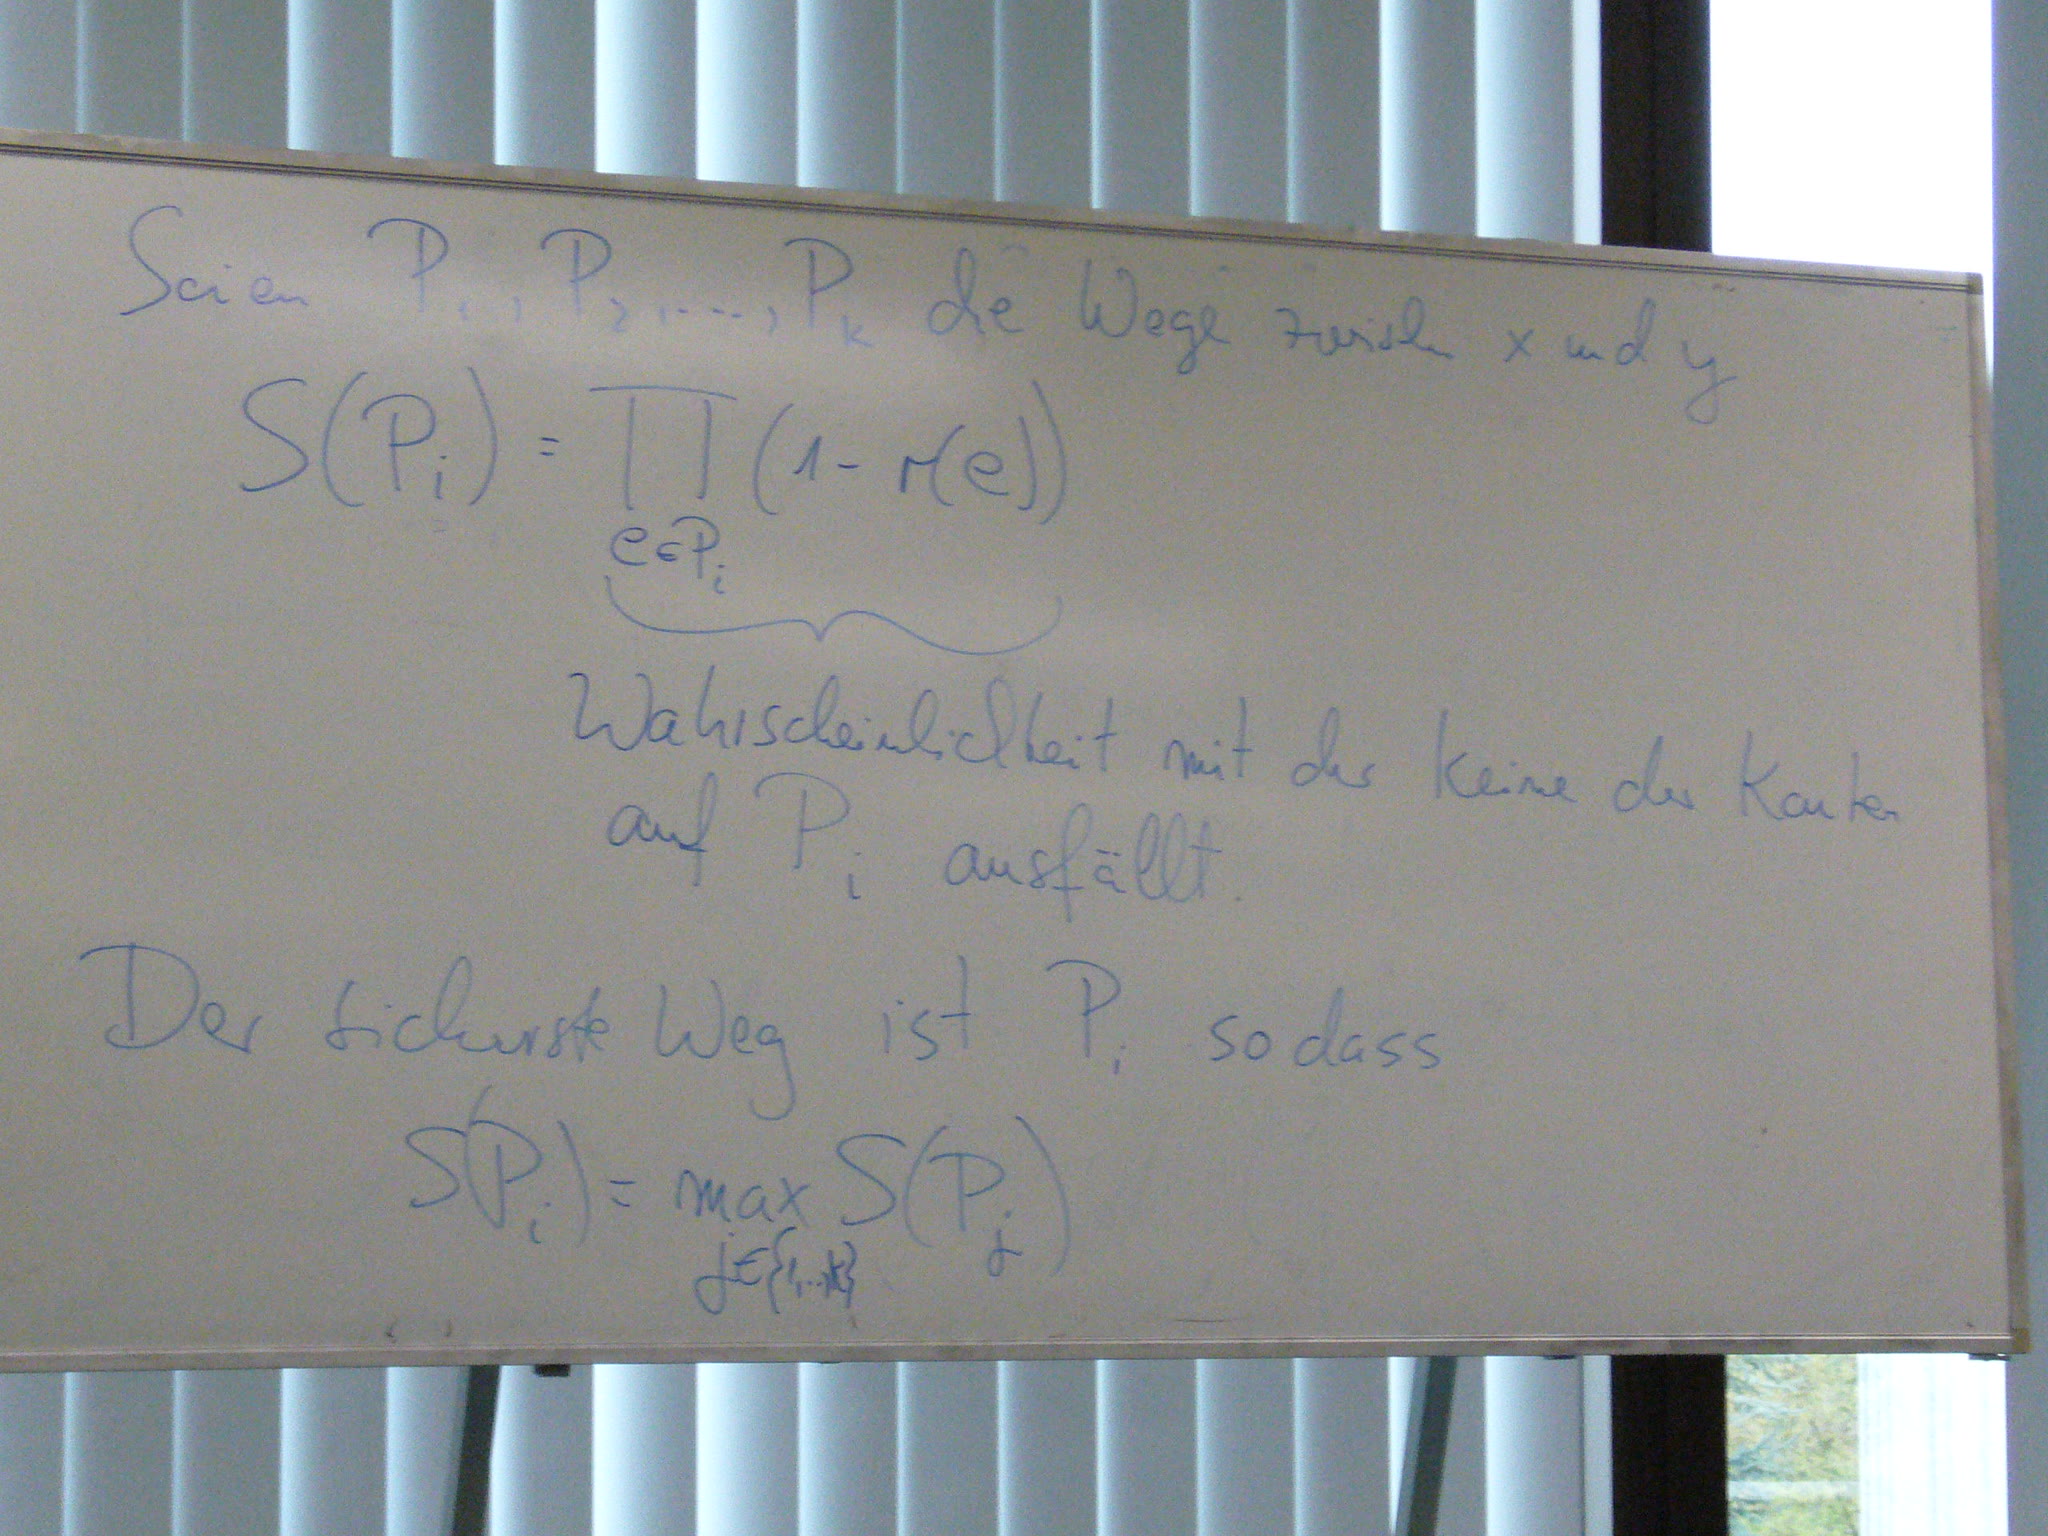 Seien P₁, P₂, ..., Pₖ die Wege zwischen x und y
S(Pᵢ) = ∏ (1 - r(e))
e∈Pᵢ
Wahrscheinlichkeit mit der keine der Kanten
auf Pᵢ ausfällt.
Der sicherste Weg ist Pᵢ sodass
S(Pᵢ) = max S(Pⱼ)
j∈{1,..,k}